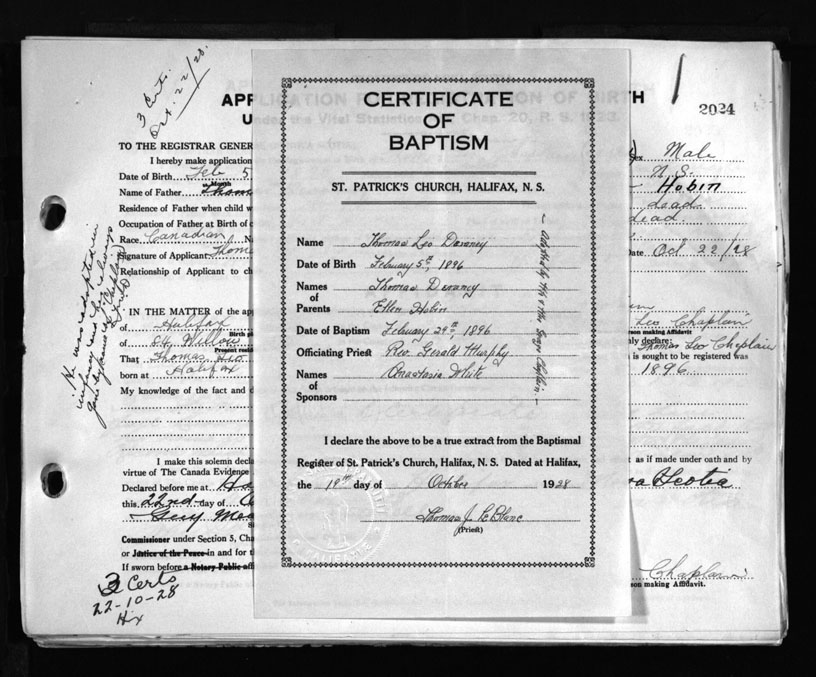 3 Certs.
Oct. 22/28.
2024
TO THE REGISTRAR GENER
I hereby make application
Date of Birth Feb 5
Month
Name of Father Thom
Residence of Father when child w
Occupation of Father at Birth of c
Race Canadian
Signature of Applicant Thom
Relationship of Applicant to ch
IN THE MATTER of the app
of Halifax
of 84 Willow
That Thomas Leo
born at Halifax
My knowledge of the fact and d
I make this solemn decla
virtue of The Canada Evidence
Declared before me at
this 22nd day of
Commissioner under Section 5, Cha
or Justice of the Peace in and for t
If sworn before a Notary Public aff
3 Certs
22-10-28
Hx
He was adopted in
infancy and
CERTIFICATE
OF
BAPTISM
ST. PATRICK'S CHURCH, HALIFAX, N. S.
Name Thomas Leo Devaney
Date of Birth February 5th, 1896
Names of Parents Thomas Devaney
Ellen Hobin
Date of Baptism February 29th, 1896
Officiating Priest Rev. Gerald Murphy
Names of Sponsors Anastasia White
Adopted by Mr & Mrs George Chaplain
I declare the above to be a true extract from the Baptismal
Register of St. Patrick's Church, Halifax, N. S. Dated at Halifax,
the 18th day of October 1928
Thomas J. LeBlanc
(Priest)
Male
N. S.
Hobin
dead
dead
Date Oct 22/28
Leo Chaplain
son making Affidavit
nly declare:
Thomas Leo Chaplain
is sought to be registered was
1896
t as if made under oath and by
Scotia
Chaplain
son making Affidavit.